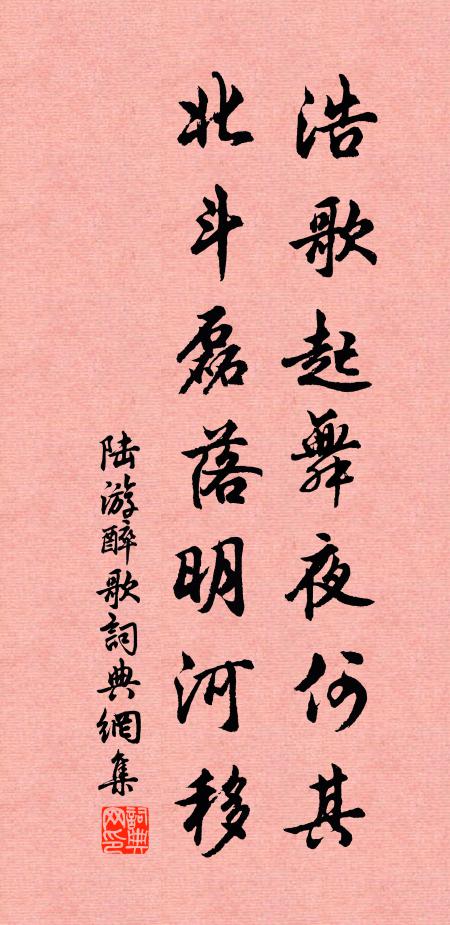 浩歌起舞夜何其
北斗磊落明河移
陆游醉歌词典網集
詞典网印